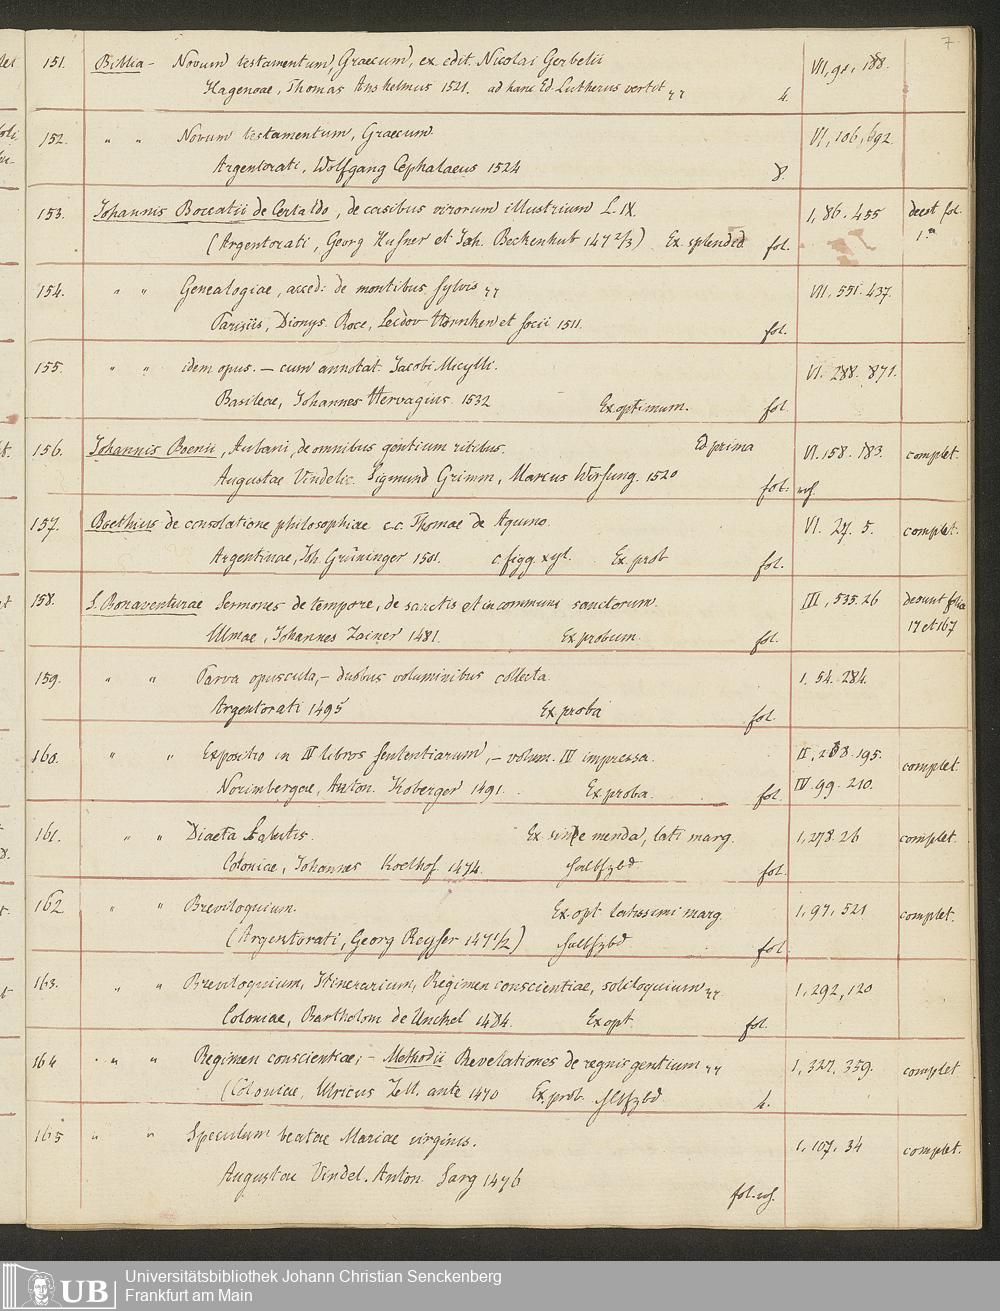 7
151. Biblia - Novum testamentum, Graecum, ex edit. Nicolai Gerbelii VII, 91, 188.
Hagenoae, Thomas Anshelmus 1521. ad hanc Ed. Lutherus vertit 4.
152. " " Novum testamentum, Graecum. VI, 106, 692
Argentorati, Wolfgang Cephalaeus 1524 8.
153. Johannis Boccatii de Certaldo, de casibus virorum illustrium L. IX. 1, 86. 455 deest fol.
(Argentorati, Georg Husner et Joh. Beckenhub 1472/3) Ex. splendid. fol. 1.a
154. " " Genealogiae, acced: de montibus sylvis VII. 551. 437.
Parisiis, Dionys. Roce, Hornken et socii 1511. fol.
155. " " idem opus. - cum annotat. Jacobi Micylli. VI. 288. 871.
Basileae, Johannes Hervagius. 1532 Ex optimum. fol.
156. Johannis Boemi, Aubani, de omnibus gentium ritibus. Ed prima VI. 158. 183. complet.
Augustae Vindelic. Sigmund Grimm, Marcus Wirsung. 1520 fol.
157. Boethius de consolatione philosophiae c.c. Thomae de Aquino. VI. 27. 5. complet.
Argentinae, Joh. Grüninger 1501. c. figg. xyl. Ex. prob fol.
158. S. Bonaventurae Sermones de tempore, de sanctis et in communi sanctorum. III, 535. 26 desunt folia
Ulmae, Johannes Zainer 1481. Ex probum. fol. 17 et 167
159. " " Parva opuscula, - duobus voluminibus collecta. 1. 54. 284.
Argentorati 1495 Ex proba fol.
160. " " Expositio in IV libros sententiarum, - volum. IV impressa. II, 288. 195. complet.
Norimbergae, Anton. Koberger 1491. Ex proba. fol. IV. 99. 210.
161. " " Diaeta Salutis. Ex. sine menda, lati marg. 1, 278. 26 complet.
Coloniae, Johannes Koelhof. 1474. halbfzbd. fol.
162 " " Breviloquium. Ex. opt latissimi marg. 1, 97, 521 complet.
(Argentorati, Georg Reyser 1471/2) halbfzbd fol.
163. " " Breviloquium, Itinerarium, Regimen conscientiae, soliloquium 1, 292, 120
Coloniae, Bartholom de Unckel 1484. Ex opt. fol.
164 " " Regimen conscientiae; - Methodii Revelationes de regnis gentium 1, 327, 359. complet
(Coloniae, Ulricus Zell. ante 1470 Ex. prob. hlbfzbd 4.
165 " " Speculum beatae Mariae virginis. 1, 107, 34 complet.
Augustae Vindel. Anton. Sorg 1476 fol.
UB
Universitätsbibliothek Johann Christian Senckenberg
Frankfurt am Main